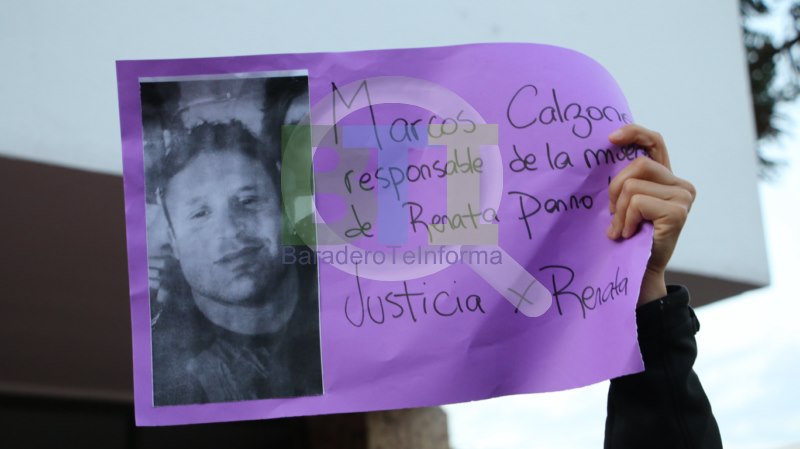 Marcos
responsable de la
de Renata Panno
Justicia x Renata
BTI
BaraderoTeInforma